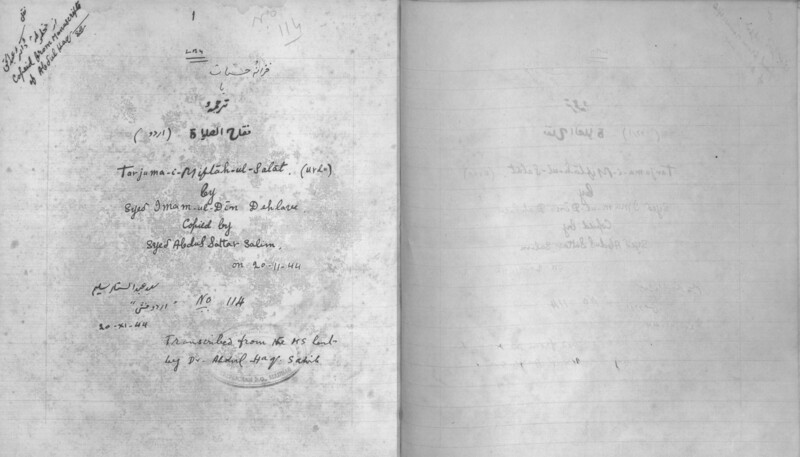 1
No
114
نقل
Copied from Manuscripts
of Abdul Haq
۷۸۶
خزائہ حسنات
یا
ترجمہ
مفتاح الصلاۃ (اردو)
Tarjuma-i-Miftāh-ul-Salāt. (Urdu)
by
Syed Imam-ul-Dīn Dehlavi
Copied by
Syed Abdus Sattar Salim.
on 20-11-44
سید عبدالستار سلیم
"اردو منشی"
20-XI-44
No 114
Transcribed from the MS lent
by Dr. Abdul Haq Sahib